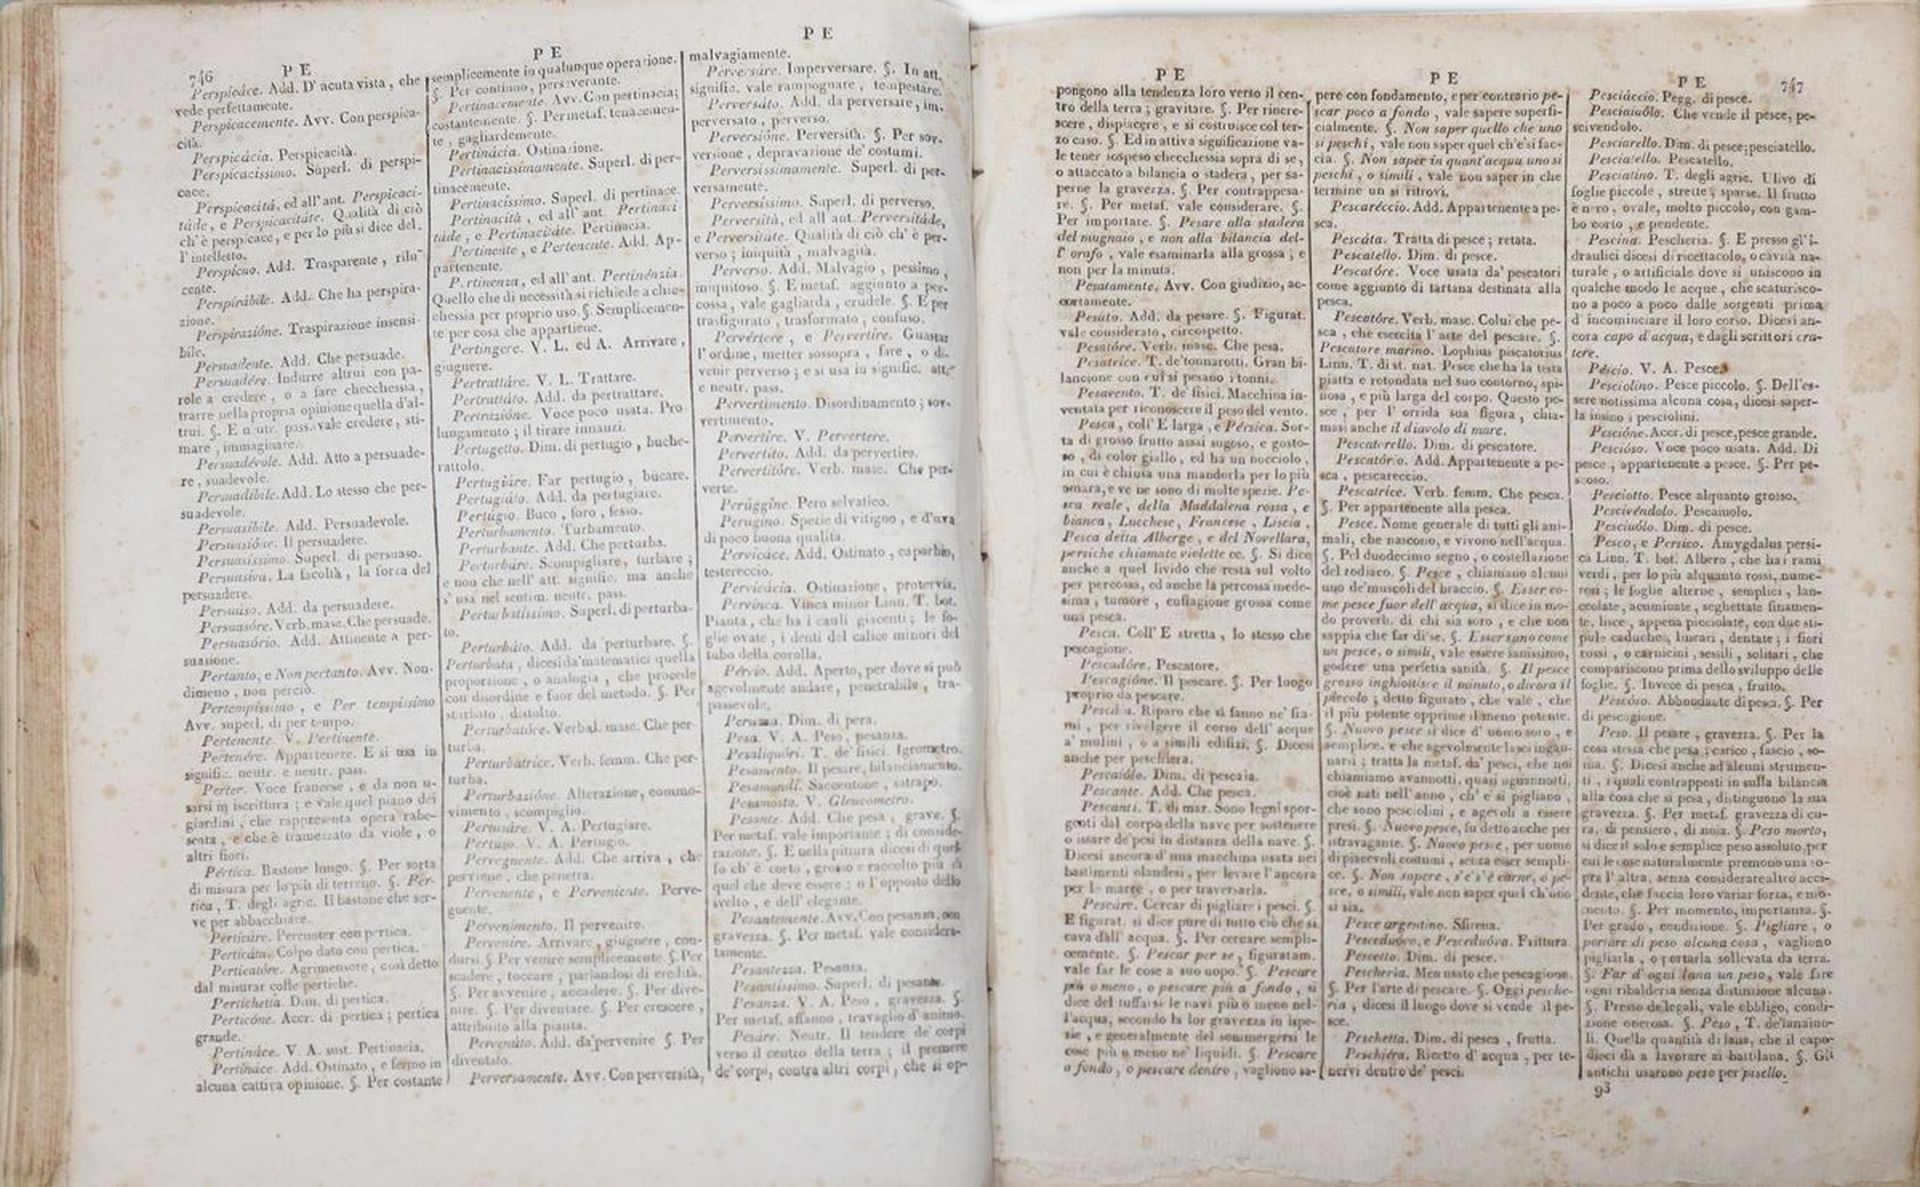 746
P E
Perspicáce. Add. D' acuta vista, che
vede perfettamente.
Perspicacemente. Avv. Con perspica-
cità.
Perspicácia. Perspicacità.
Perspicacissimo. Superl. di perspi-
cace.
Perspicacità, ed all'ant. Perspicaci-
táde, e Perspicacitáte. Qualità di ciò
ch' è perspicace, e per lo più si dice del-
l' intelletto.
Perspicuo. Add. Trasparente, rilu-
cente.
Perspirábile. Add. Che ha perspira-
zione.
Perspirazióne. Traspirazione insensi-
bile.
Persuadente. Add. Che persuade.
Persuadére. Indurre altrui con pa-
role a credere, o a fare checchessia,
trarre nella propria opinione quella d'al-
trui. §. E neutr. pass. vale credere, sti-
mare, immaginare.
Persuadévole. Add. Atto a persuade-
re, suadevole.
Persuadibile. Add. Lo stesso che per-
suadevole.
Persuasibile. Add. Persuadevole.
Persuasióne. Il persuadere.
Persuasissimo. Superl. di persuaso.
Persuasiva. La facoltà, la forza del
persuadere.
Persuáso. Add. da persuadere.
Persuasóre. Verb. masc. Che persuade.
Persuasório. Add. Attinente a per-
suasione.
Pertanto, e Non pertanto. Avv. Non-
dimeno, non perciò.
Pertempissimo, e Per tempissimo
Avv. superl. di per tempo.
Pertenente. V. Pertinente.
Pertenére. Appartenere. E si usa in
signific. neutr. e neutr. pass.
Perter. Voce francese, e da non u-
sarsi in iscrittura; e vale quel piano dei
giardini, che rappresenta opera rabe-
scata, e che è tramezzato da viole, o
altri fiori.
Pértica. Bastone lungo. §. Per sorta
di misura per lo più di terreno. §. Per-
tica, T. degli agric. Il bastone che ser-
ve per abbacchiare.
Perticáre. Percuoter con pertica.
Perticáta. Colpo dato con pertica.
Perticatóre. Agrimensore, così detto
dal misurar colle pertiche.
Pertichetta. Dim. di pertica.
Perticóne. Accr. di pertica; pertica
grande.
Pertináce. V. A. sust. Pertinacia.
Pertináce. Add. Ostinato, e fermo in
alcuna cattiva opinione. §. Per costante
P E
semplicemente in qualunque operazione.
§. Per continuo, perseverante.
Pertinacemente. Avv. Con pertinacia;
costantemente. §. Per metaf. tenacemen-
te, gagliardemente.
Pertinácia. Ostinazione.
Pertinacissimamente. Superl. di per-
tinacemente.
Pertinacissimo. Superl. di pertinace.
Pertinacità, ed all' ant. Pertinaci-
táde, e Pertinacitáte. Pertinacia.
Pertinente, e Pertenente. Add. Ap-
partenente.
Pertinenza, ed all' ant. Pertinénzia.
Quello che di necessità si richiede a chec-
chessia per proprio uso. §. Semplicemen-
te per cosa che appartiene.
Pertingere. V. L. ed A. Arrivare,
giugnere.
Pertrattáre. V. L. Trattare.
Pertrattáto. Add. da pertrattare.
Pertrazióne. Voce poco usata. Pro
lungamento; il tirare innanzi.
Pertugetto. Dim. di pertugio, buche-
rattolo.
Pertugiáre. Far pertugio, bucare.
Pertugiáto. Add. da pertugiare.
Pertúgio. Buco, foro, fesso.
Perturbamento. Turbamento.
Perturbante. Add. Che perturba.
Perturbáre. Scompigliare, turbare;
e non che nell' att. signific. ma anche
s' usa nel sentim. neutr. pass.
Perturbatissimo. Superl. di perturba-
to.
Perturbáto. Add. da perturbare. §.
Perturbata, dicesi da' matematici quella
proporzione, o analogia, che procede
con disordine e fuor del metodo. §. Per
sturbato, distolto.
Perturbatóre. Verbal. masc. Che per-
turba.
Perturbátrice. Verb. femm. Che per-
turba.
Perturbazióne. Alterazione, commo-
vimento, scompiglio.
Pertusáre. V. A. Pertugiare.
Pertuso. V. A. Pertugio.
Pervegnente. Add. Che arriva, che
perviene, che penetra.
Pervenente, e Perveniente. Perve-
gnente.
Pervenimento. Il pervenire.
Pervenire. Arrivare, giugnere, con-
dursi. §. Per venire semplicemente. §. Per
scadere, toccare, parlandosi di eredità.
§. Per avvenire, accadere. §. Per dive-
nire. §. Per diventare. §. Per crescere,
attribuito alla pianta.
Pervenúto. Add. da pervenire §. Per
diventato.
Perversamente. Avv. Con perversità,
P E
malvagiamente.
Perversáre. Imperversare. §. In att.
signific. vale rampognare, tempestare.
Perversáto. Add. da perversare, im-
perversato, perverso.
Perversióne. Perversità. §. Per sov-
versione, depravazione de' costumi.
Perversissimamente. Superl. di per-
versamente.
Perversissimo. Superl. di perverso.
Perversità, ed all ant. Perversitáde,
e Perversitáte. Qualità di ciò ch' è per-
verso; iniquità, malvagità.
Perverso. Add. Malvagio, pessimo,
iniquitoso. §. E metaf. aggiunto a per-
cossa, vale gagliarda, crudele. §. E per
trasfigurato, trasformato, confuso.
Pervértere, e Pervertire. Guastar
l' ordine, metter sossopra, fare, o di-
venir perverso; e si usa in signific. att.
e neutr. pass.
Pervertimento. Disordinamento; sov-
vertimento.
Pervertire. V. Pervertere.
Pervertito. Add. da pervertire.
Pervertitóre. Verb. masc. Che per-
verte.
Perúggine. Pero selvatico.
Perugino. Spezie di vitigno, e d'uva
di poco buona qualità.
Pervicáce. Add. Ostinato, caparbio,
testereccio.
Pervicácia. Ostinazione, protervia.
Pervinca. Vinca minor Linn. T. bot.
Pianta, che ha i cauli giacenti; le fo-
glie ovate, i denti del calice minori del
tubo della corolla.
Pérvio. Add. Aperto, per dove si può
agevolmente andare, penetrabile, tra-
passevole.
Peruzza. Dim. di pera.
Pesa. V. A. Peso, pesanza.
Pesaliquóri. T. de' fisici. Igrometro.
Pesamento. Il pesare, bilanciamento.
Pesamondi. Saccentone, satrapo.
Pesamosto. V. Gleucometro.
Pesante. Add. Che pesa, grave. §.
Per metaf. vale importante; di conside-
razione. §. E nella pittura dicesi di quel-
lo ch' è corto, grosso e raccolto più di
quel che deve essere; o l'opposto dello
svelto, e dell' elegante.
Pesantemente. Avv. Con pesanza, con
gravezza. §. Per metaf. vale considera-
tamente.
Pesantezza. Pesanza.
Pesantissimo. Superl. di pesante.
Pesanza. V. A. Peso, gravezza. §.
Per metaf. affanno, travaglio d' animo.
Pesáre. Neutr. Il tendere de' corpi
verso il centro della terra; il premere
de' corpi, contra altri corpi, che si op-
P E
pongono alla tendenza loro verso il cen-
tro della terra; gravitare. §. Per rincre-
scere, dispiacere, e si costruisce col ter-
zo caso. §. Ed in attiva significazione va-
le tener sospeso checchessia sopra di se,
o attaccato a bilancia o stadera, per sa-
perne la gravezza. §. Per contrappesa-
re. §. Per metaf. vale considerare. §.
Per importare. §. Pesare alla stadera
del mugnaio, e non alla bilancia del-
l' orafo, vale esaminarla alla grossa, e
non per la minuta.
Pesatamente. Avv. Con giudizio, ac-
cortamente.
Pesáto. Add. da pesare. §. Figurat.
vale considerato, circospetto.
Pesatóre. Verb. masc. Che pesa.
Pesatrice. T. de' tonnarotti. Gran bi-
lancione con cui si pesano i tonni.
Pesavento. T. de' fisici. Macchina in-
ventata per riconoscere il peso del vento.
Pesca, coll' E larga, e Pérsica. Sor-
ta di grosso frutto assai sugoso, e gusto-
so, di color giallo, ed ha un nocciolo,
in cui è chiusa una mandorla per lo più
amara, e ve ne sono di molte spezie. Pe-
sca reale, della Maddalena rossa, e
bianca, Lucchese, Francese, Liscia,
Pesca detta Alberge, e del Novellara,
persiche chiamate violette ec. §. Si dice
anche a quel livido che resta sul volto
per percossa, ed anche la percossa mede-
sima, tumore, enfiagione grossa come
una pesca.
Pesca. Coll' E stretta, lo stesso che
pescagione.
Pescadóre. Pescatore.
Pescagióne. Il pescare. §. Per luogo
proprio da pescare.
Pescáia. Riparo che si fanno ne' fiu-
mi, per rivolgere il corso dell' acque
a' mulini, o a simili edifizi. §. Dicesi
anche per peschiera.
Pescaiólo. Dim. di pescaia.
Pescante. Add. Che pesca.
Pescanti. T. di mar. Sono legni spor-
genti dal corpo della nave per sostenere
o issare de' pesi in distanza della nave. §.
Dicesi ancora d' una macchina usata nei
bastimenti olandesi, per levare l'ancora
per le marre, o per traversarla.
Pescáre. Cercar di pigliare i pesci. §.
E figurat. si dice pure di tutto ciò che si
cava dall' acqua. §. Per cercare sempli-
cemente. §. Pescar per se, figuratam.
vale far le cose a suo uopo. §. Pescare
più o meno, o pescare più a fondo, si
dice del tuffarsi le navi più o meno nel-
l'acqua, secondo la lor gravezza in ispe-
zie, e generalmente del sommergersi le
cose più o meno ne' liquidi. §. Pescare
a fondo, o pescare dentro, vagliono sa-
P E
pere con fondamento, e per contrario pe-
scar poco a fondo, vale sapere superfi-
cialmente. §. Non saper quello che uno
si peschi, vale non saper quel ch'e' si fac-
cia. §. Non saper in quant'acqua uno si
peschi, o simili, vale non saper in che
termine un si ritrovi.
Pescaréccio. Add. Appartenente a pe-
sca.
Pescáta. Tratta di pesce; retata.
Pescatello. Dim. di pesce.
Pescatóre. Voce usata da' pescatori
come aggiunto di tartana destinata alla
pesca.
Pescatóre. Verb. masc. Colui che pe-
sca, che esercita l' arte del pescare. §.
Pescatore marino. Lophius piscatorius
Linn. T. di st. nat. Pesce che ha la testa
piatta e rotondata nel suo contorno, spi-
nosa, e più larga del corpo. Questo pe-
sce, per l' orrida sua figura, chia-
masi anche il diavolo di mare.
Pescatorello. Dim. di pescatore.
Pescatório. Add. Appartenente a pe-
sca, pescareccio.
Pescatrice. Verb. femm. Che pesca.
§. Per appartenente alla pesca.
Pesce. Nome generale di tutti gli ani-
mali, che nascono, e vivono nell'acqua.
§. Pel duodecimo segno, o costellazione
del zodiaco. §. Pesce, chiamano alcuni
uno de' muscoli del braccio. §. Esser co-
me pesce fuor dell' acqua, si dice in mo-
do proverb. di chi sia soro, e che non
sappia che far di se. §. Esser sano come
un pesce, o simili, vale essere sanissimo,
godere una perfetta sanità. §. Il pesce
grosso inghiottisce il minuto, o divora il
piccolo; detto figurato, che vale, che
il più potente opprime il meno potente.
§. Nuovo pesce si dice d' uomo soro, e
semplice, e che agevolmente lasci ingan-
narsi; tratta la metaf. da' pesci, che noi
chiamiamo avannotti, quasi uguannotti,
cioè nati nell' anno, ch' e' si pigliano,
che sono pesciolini, e agevoli a essere
presi. §. Nuovo pesce, fu detto anche per
istravagante. §. Nuovo pesce, per uomo
di piacevoli costumi, senza esser sempli-
ce. §. Non sapere, s'e' s'è carne, o pe-
sce, o simili, vale non saper quel ch'uno
si sia.
Pesce argentino. Sfirena.
Pesceduóvo, e Pesceduóva. Frittura.
Pescetto. Dim. di pesce.
Pescheria. Men usato che pescagione.
§. Per l'arte di pescare. §. Oggi pesche-
ria, dicesi il luogo dove si vende il pe-
sce.
Peschetta. Dim. di pesca, frutta.
Peschiéra. Ricetto d' acqua, per te-
nervi dentro de' pesci.
P E
747
Pesciáccio. Pegg. di pesce.
Pesciaiuólo. Che vende il pesce, pe-
scivendolo.
Pesciarello. Dim. di pesce; pesciatello.
Pesciatello. Pescatello.
Pesciatino. T. degli agric. Ulivo di
foglie piccole, strette, sparse. Il frutto
è nero, ovale, molto piccolo, con gam-
bo corto, e pendente.
Pescina. Pescheria. §. E presso gl' i-
draulici dicesi di ricettacolo, o cavità na-
turale, o artificiale dove si uniscono in
qualche modo le acque, che scaturisco-
no a poco a poco dalle sorgenti prima
d' incominciare il loro corso. Dicesi an-
cora capo d'acqua, e dagli scrittori cra-
tere.
Péscio. V. A. Pesce.
Pesciolino. Pesce piccolo. §. Dell'es-
sere notissima alcuna cosa, dicesi saper-
la insino i pesciolini.
Pescióne. Accr. di pesce, pesce grande.
Pescióso. Voce poco usata. Add. Di
pesce, appartenente a pesce. §. Per pe-
scoso.
Pesciotto. Pesce alquanto grosso.
Pescivéndolo. Pescaiuolo.
Pesciuólo. Dim. di pesce.
Pesco, e Persico. Amygdalus persi-
ca Linn. T. bot. Albero, che ha i rami
verdi, per lo più alquanto rossi, nume-
rosi; le foglie alterne, semplici, lan-
ceolate, acuminate, seghettate finamen-
te, lisce, appena picciolate, con due sti-
pule caduche, lineari, dentate; i fiori
rossi, o carnicini, sessili, solitari, che
compariscono prima dello sviluppo delle
foglie. §. Invece di pesca, frutto.
Pescóso. Abbondante di pesca. §. Per
di pescagione.
Peso. Il pesare, gravezza. §. Per la
cosa stessa che pesa; carico, fascio, so-
ma. §. Dicesi anche ad alcuni strumen-
ti, i quali contrapposti in sulla bilancia
alla cosa che si pesa, distinguono la sua
gravezza. §. Per metaf. gravezza di cu-
ra, di pensiero, di noia. §. Peso morto,
si dice il solo e semplice peso assoluto, per
cui le cose naturalmente premono una so-
pra l' altra, senza considerare altro acci-
dente, che faccia loro variar forza, e mo-
mento. §. Per momento, importanza. §.
Per grado, condizione. §. Pigliare, o
portare di peso alcuna cosa, vagliono
pigliarla, o portarla sollevata da terra.
§. Far d' ogni lana un peso, vale fare
ogni ribalderia senza distinzione alcuna.
§. Presso de' legali, vale obbligo, condi-
zione onerosa. §. Peso, T. de' lanaiuo-
li. Quella quantità di lana, che il capo-
dieci dà a lavorare ai battilana. §. Gli
antichi usarono peso per pisello.
93